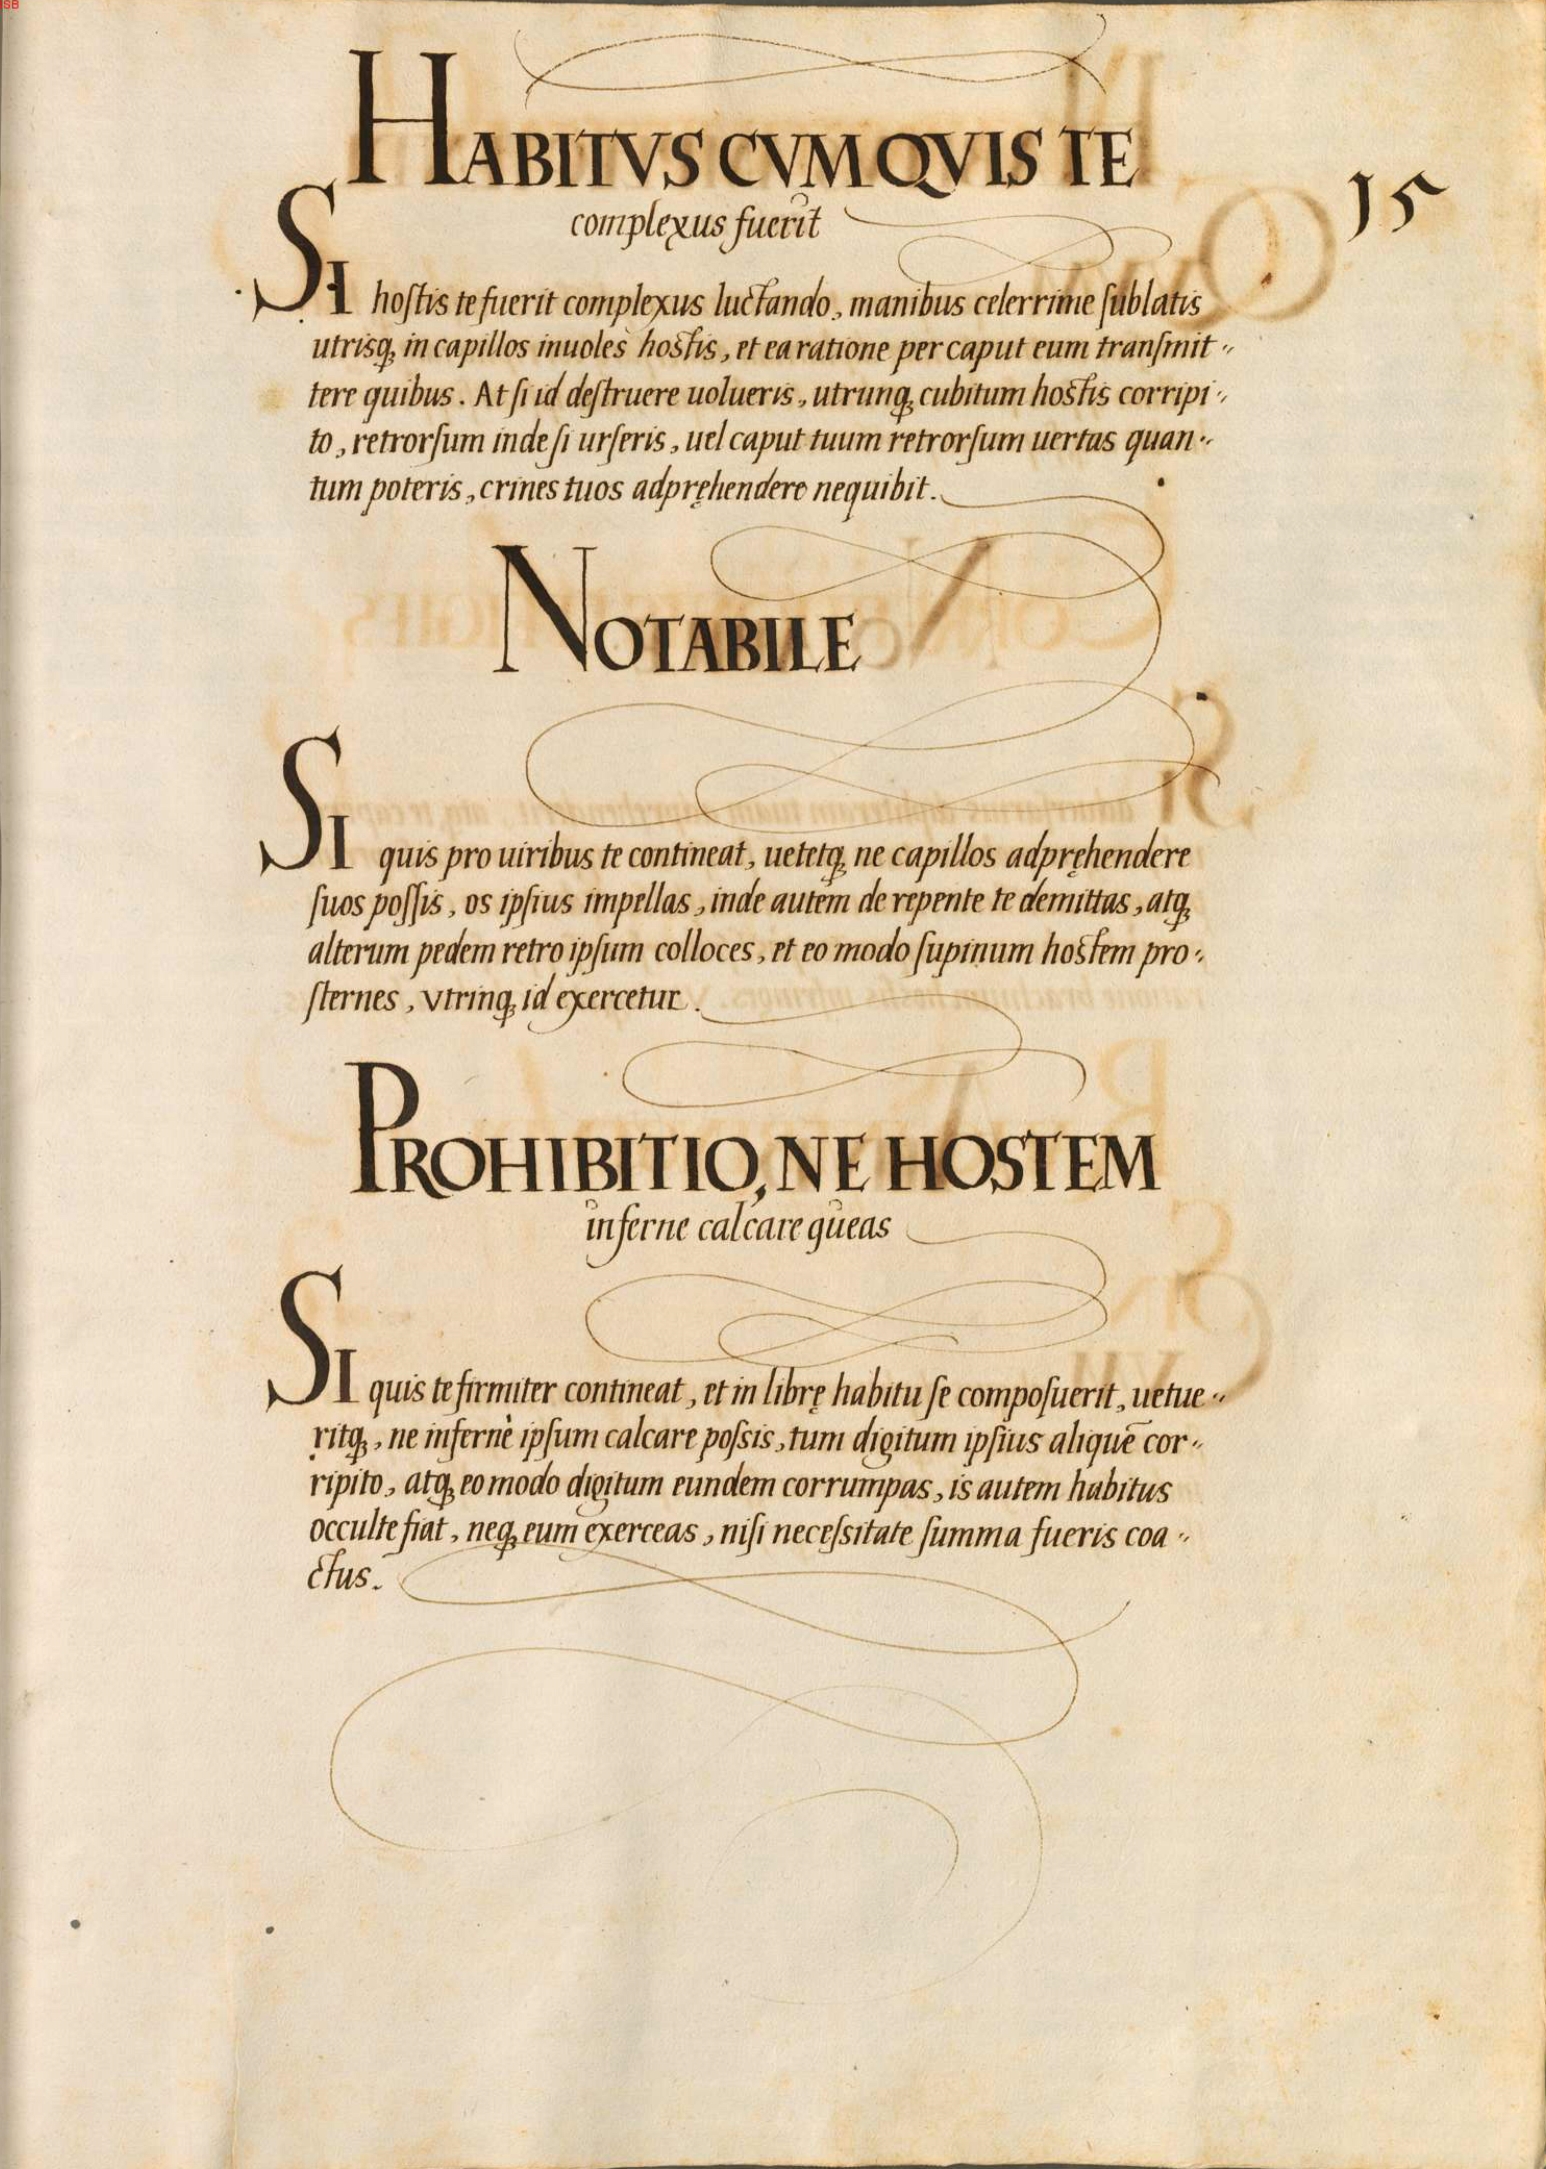 HABITVS CVM QVIS TE
15
complexus fuerit
SI hoſtis te fuerit complexus luctando, manibus celerrime ſublatis
utrisq; in capillos inuoles hostis, et ea ratione per caput eum tranſmit„
tere quibus. At ſi id deſtruere uolueris, utrunq; cubitum hostis corripi„
to, retrorſum inde ſi urſeris, uel caput tuum retrorſum uertas quan„
tum poteris, crines tuos adpręhendere nequibit.
NOTABILE
SI quis pro uiribus te contineat, uetetq; ne capillos adpręhendere
ſuos poſſis, os ipſius impellas, inde autem de repente te demittas, atq;
alterum pedem retro ipſum colloces, et eo modo ſupinum hostem pro„
ſternes, vtrinq; id exercetur.
PROHIBITIO, NE HOSTEM
inferne calcare queas
SI quis te firmiter contineat, et in librę habitu ſe compoſuerit, uetue„
ritq;, ne infernè ipſum calcare poſsis, tum digitum ipſius aliquē cor„
ripito, atq; eo modo digitum eundem corrumpas, is autem habitus
occulte fiat, neq; eum exerceas, niſi neceſsitate ſumma fueris coa„
ctus.